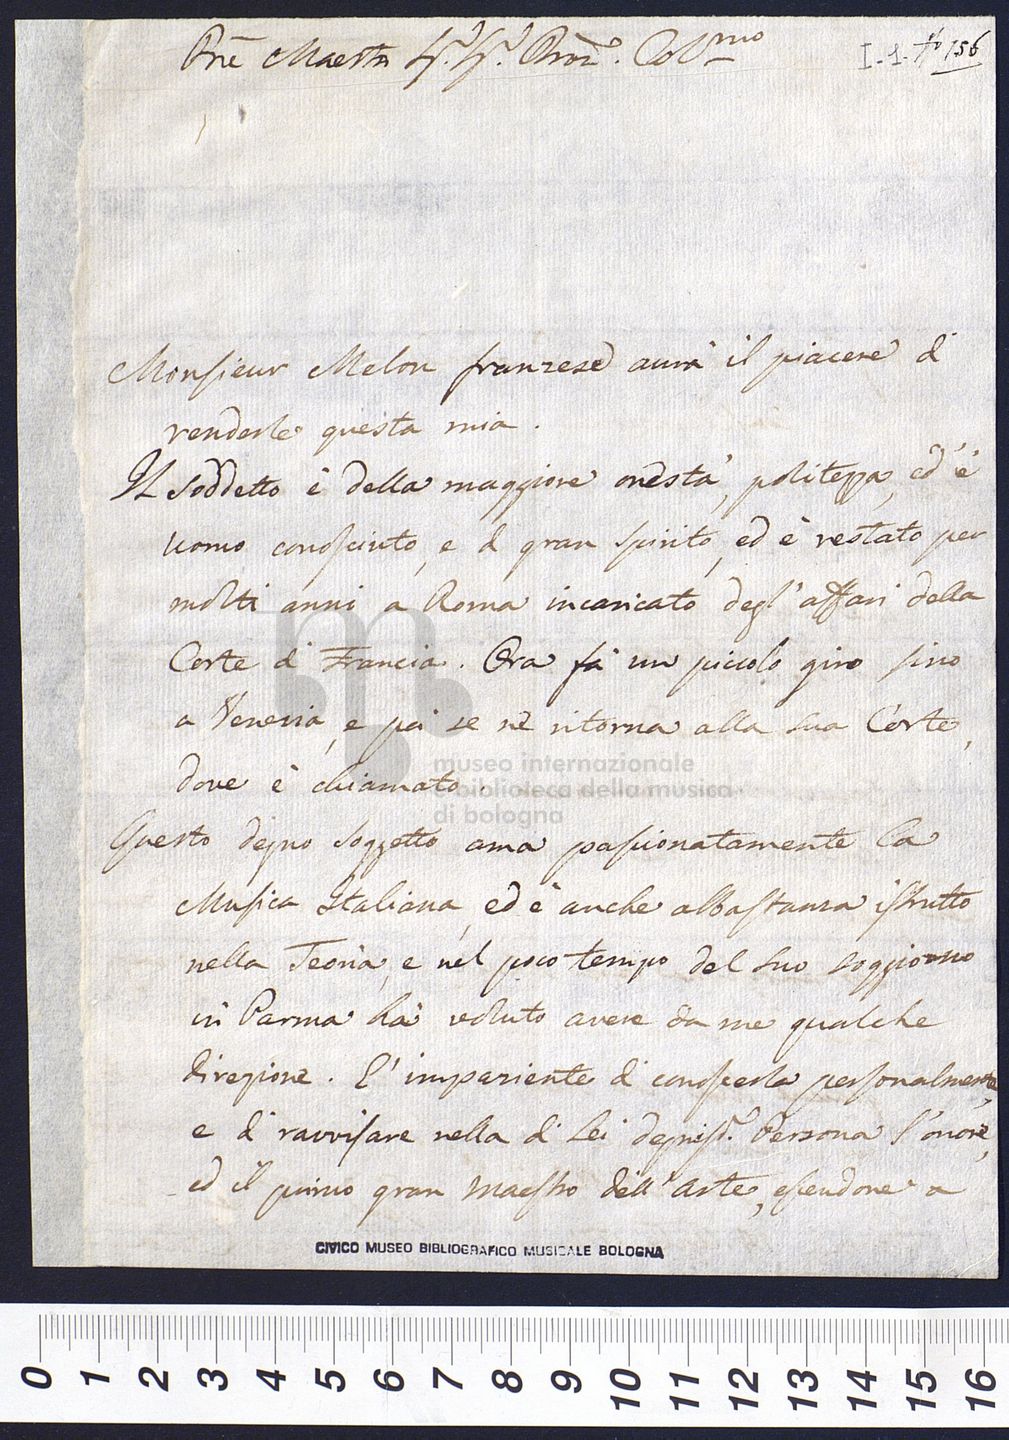 Pre Maestro Sig.r Sig.r Pron.e Col.mo
I.-1.-N.o 156
Monsieur Melon franzese aurà il piacere di
renderle questa mia.
Il soddetto è della maggiore onestà, politezza, ed è
uomo conosciuto, e di gran spirito, ed è restato per
molti anni a Roma incaricato degl'affari della
Corte di Francia. Ora fà un piccolo giro sino
a Venezia, e poi se nè ritorna alla sua Corte,
dove è chiamato.
Questo degno soggetto ama passionatamente la
Musica Italiana, ed è anche abbastanza istrutto
nella Teoria, e nel poco tempo del suo soggiorno
in Parma hà voluto avere da me qualche
direzione. È impaziente di conoscerla personalmente,
e di ravvisare nella di Lei degniss.a Persona l'onore,
ed il primo gran Maestro dell'Arte, essendone a
museo internazionale
e biblioteca della musica
di bologna
CIVICO MUSEO BIBLIOGRAFICO MUSICALE BOLOGNA
0 1 2 3 4 5 6 7 8 9 10 11 12 13 14 15 16